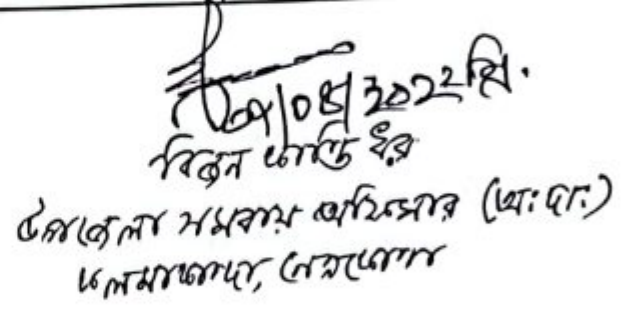 ০৪/২০২২খ্রি.
বিজন কান্তি ধর
উপজেলা সমবায় অফিসার (অঃদাঃ)
কলমাকান্দা, নেত্রকোণা